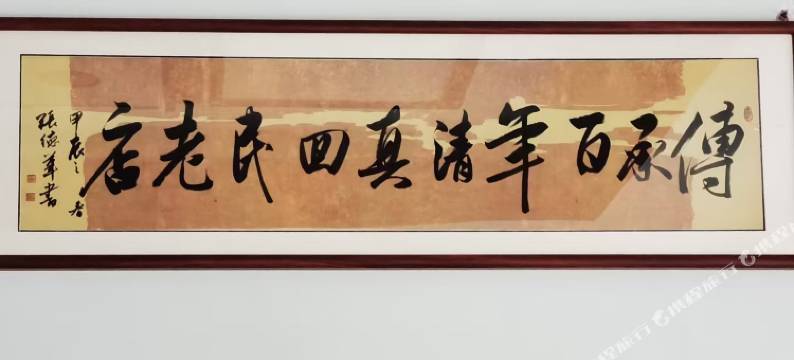 傳承百年清真回民老店
甲辰之春
張德華書
携程旅行
携程旅行